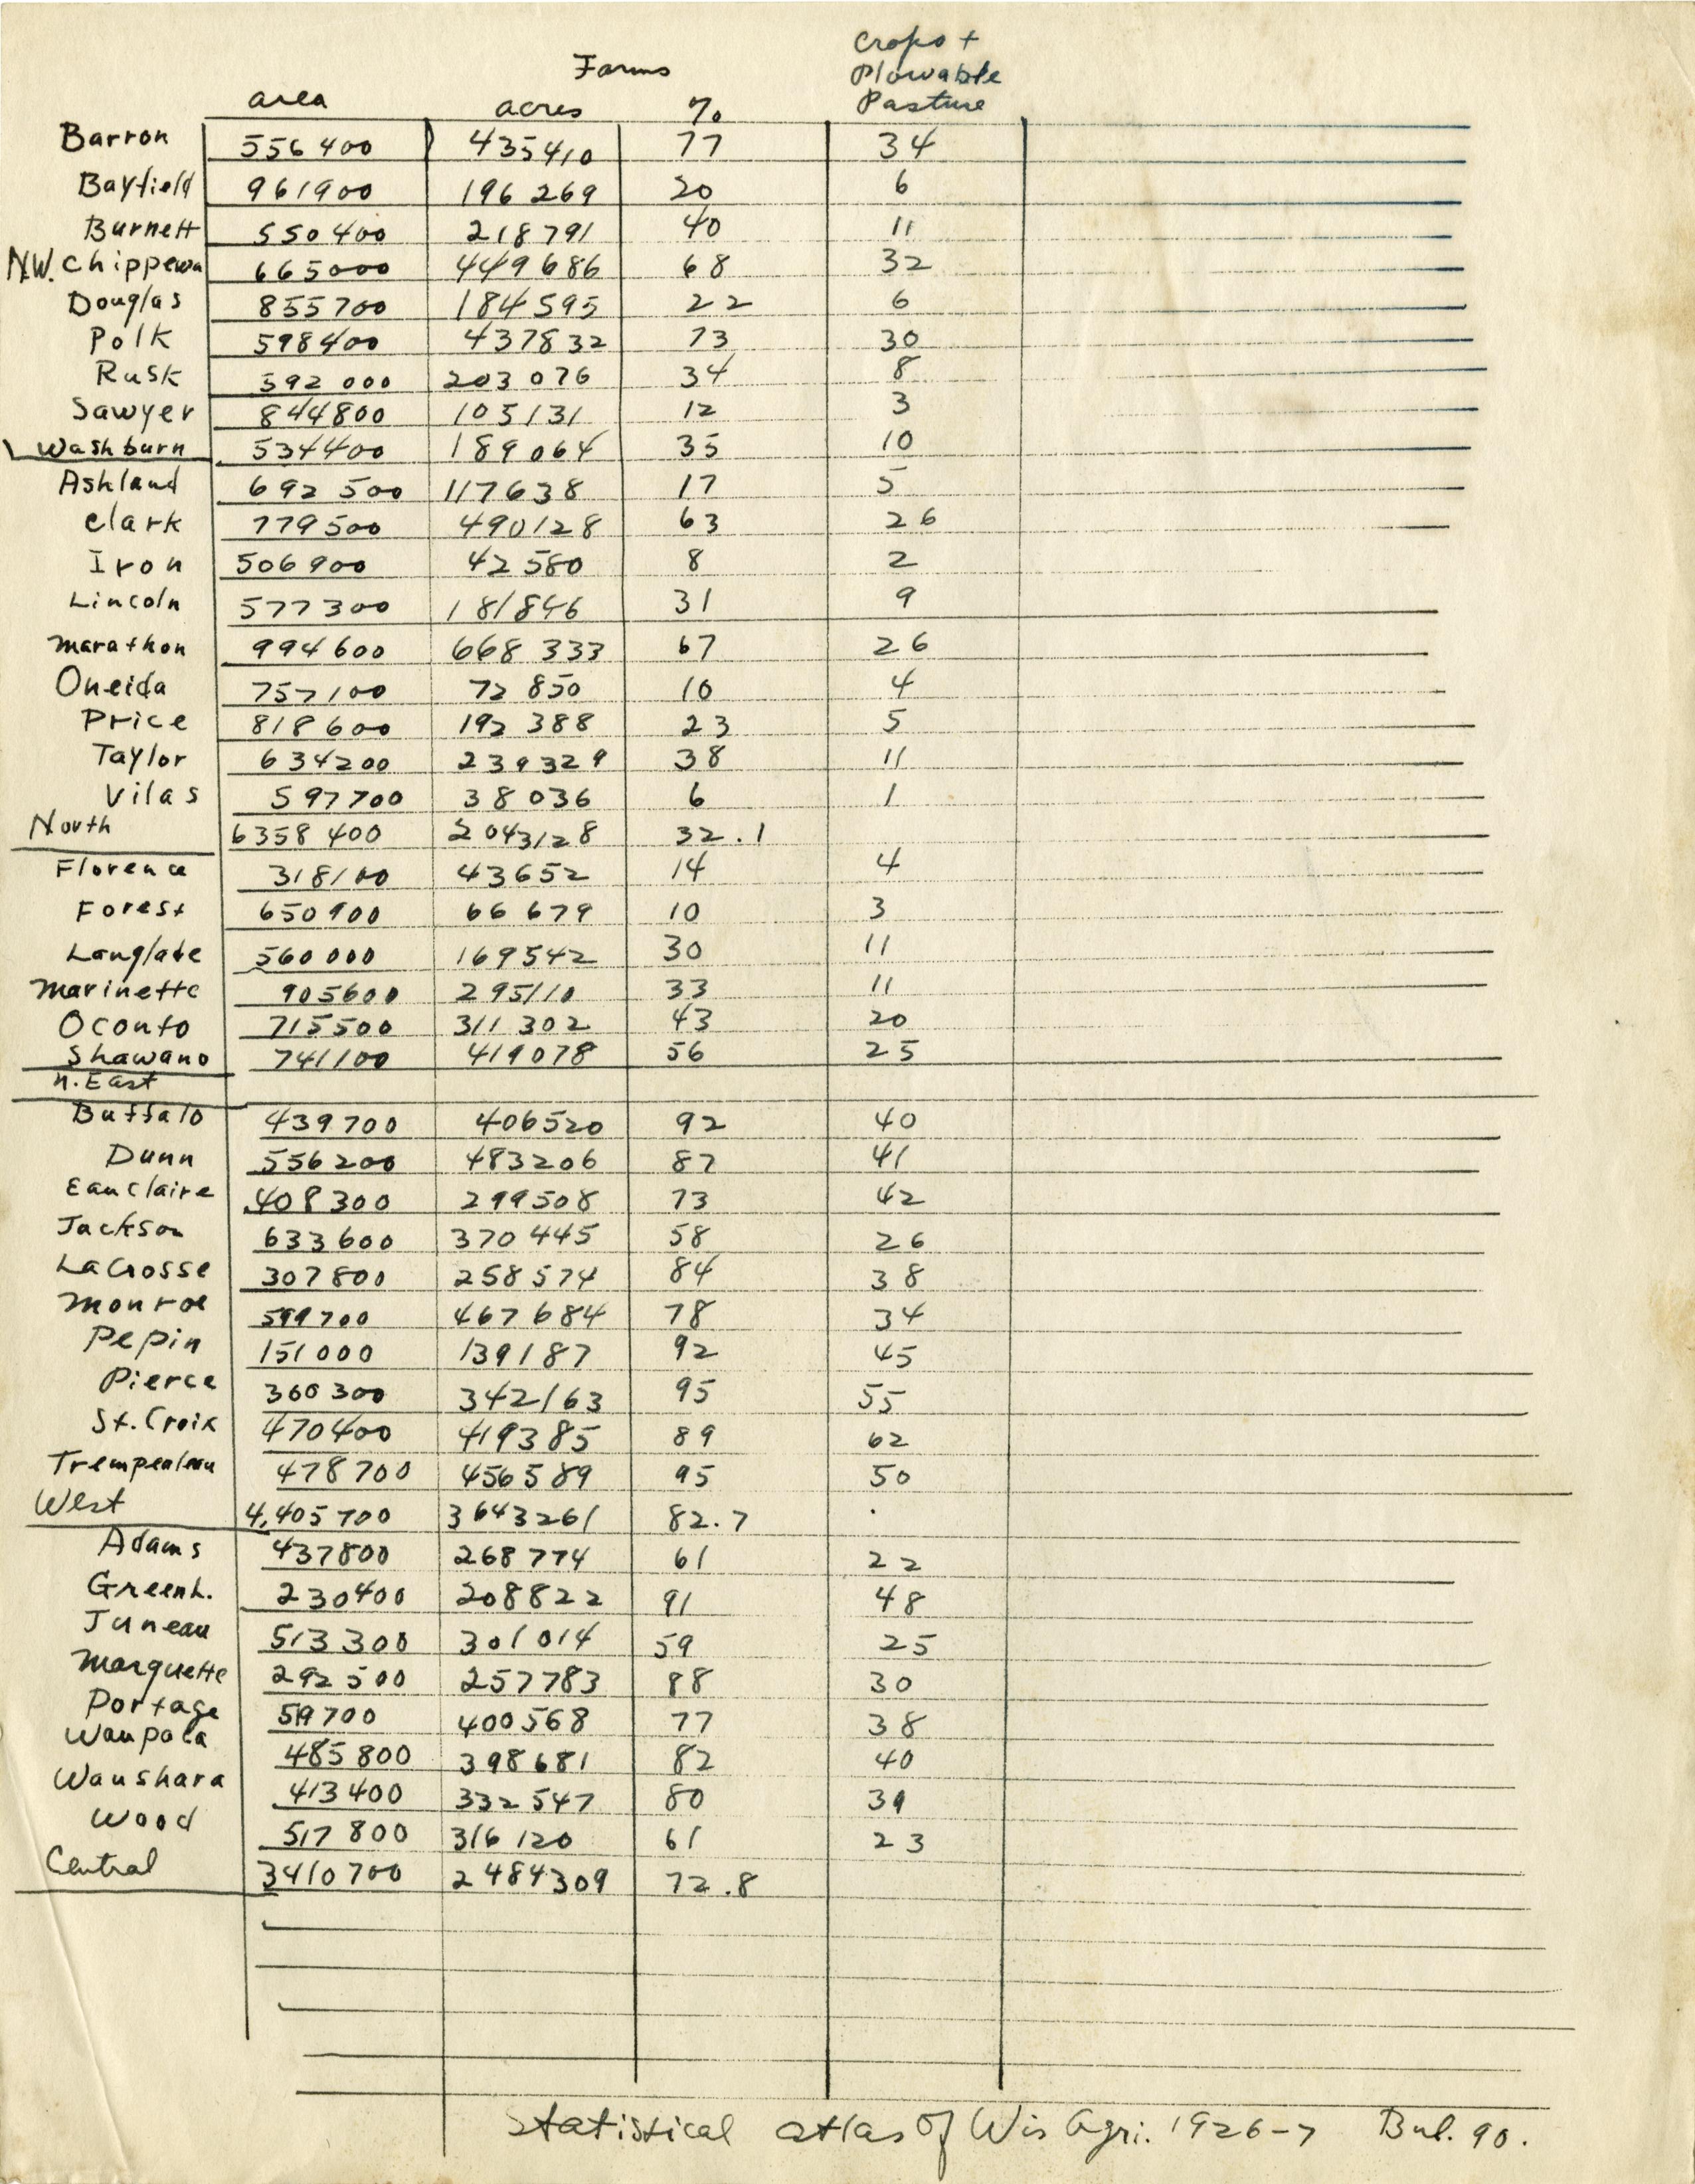 Crops +
Farms Plowable
area acres % Pasture
Barron 556400 435410 77 34
Bayfield 961900 196269 20 6
Burnett 550400 218791 40 11
N.W. Chippewa 665000 449686 68 32
Douglas 855700 184595 22 6
Polk 598400 437832 73 30
Rusk 592000 203076 34 8
Sawyer 844800 105131 12 3
Washburn 534400 189064 35 10
Ashland 692500 117638 17 5
Clark 779500 490128 63 26
Iron 506900 42580 8 2
Lincoln 577300 181846 31 9
Marathon 994600 668333 67 26
Oneida 757100 72850 10 4
Price 818600 192388 23 5
Taylor 634200 239329 38 11
Vilas 597700 38036 6 1
North 6358400 2043128 32.1
Florence 318100 43652 14 4
Forest 650900 66679 10 3
Langlade 560000 169542 30 11
Marinette 905600 295110 33 11
Oconto 715500 311302 43 20
Shawano 741100 419078 56 25
N. East
Buffalo 439700 406520 92 40
Dunn 556200 483206 87 41
Eau Claire 408300 299508 73 42
Jackson 633600 370445 58 26
LaCrosse 307800 258574 84 38
Monroe 599700 467684 78 34
Pepin 151000 139187 92 45
Pierce 360300 342163 95 55
St. Croix 470400 419385 89 62
Trempealeau 478700 456589 95 50
West 4,405700 3643261 82.7
Adams 437800 268774 61 22
Green L. 230400 208822 91 48
Juneau 513300 301014 59 25
Marquette 292500 257783 88 30
Portage 519700 400568 77 38
Waupaca 485800 398681 82 40
Waushara 413400 332547 80 39
Wood 517800 316120 61 23
Central 3410700 2484309 72.8
Statistical atlas of Wis Agri. 1926-7 Bul. 90.